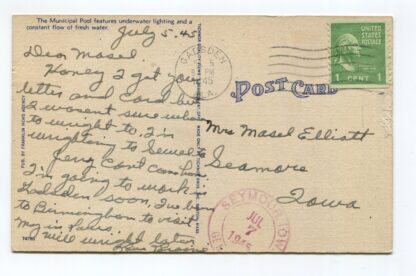 The Municipal Pool features underwater lighting and a
constant flow of fresh water.
July 5. 45
Dear Masel
Honey I got your
letter and card but
I wasent sure where
to wright to, I'm
wrighting to Semore
Jerry cant come but
I'm going to work in
Gadsden soon, I've been
to Birmingham to visit
my in laws.
Will wright later
PUB. BY FRANKLIN NEWS AGENCY
74795
GADSDEN
5
PM
45
ALA.
POST CARD
UNITED STATES
POSTAGE
1 CENT 1
Mrs Masel Elliott
Seamore
Iowa
SEYMOUR, IOWA
JUL
7
1945